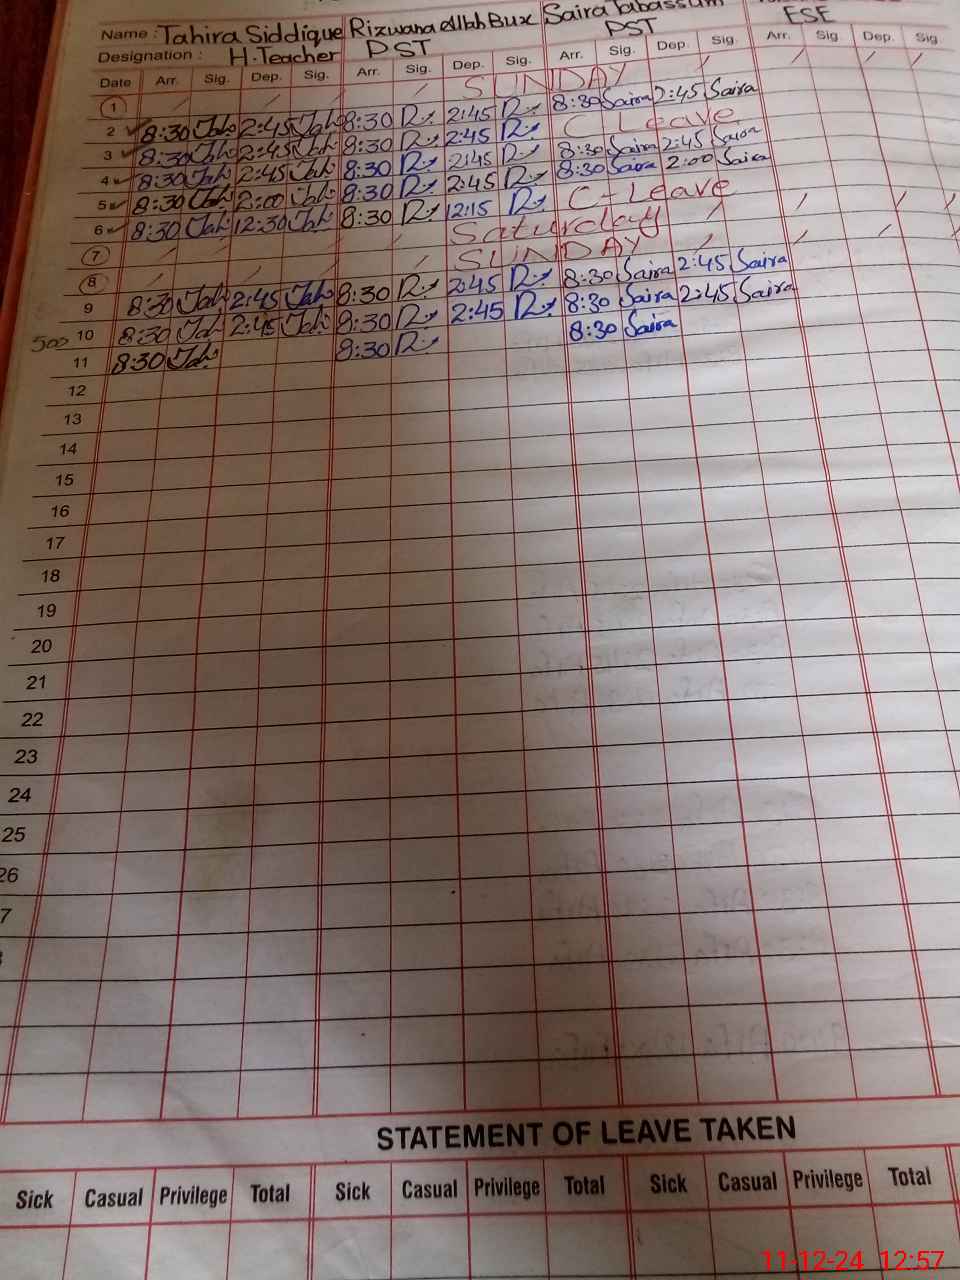 Name : Tahira Siddique Rizwana Allah Bux Saira Tabassum
Designation : H.Teacher PST PST ESE
Date Arr. Sig. Dep. Sig. Arr. Sig. Dep. Sig. Arr. Sig. Dep. Sig. Arr. Sig. Dep. Sig.
1 SUNDAY
2 8:30 Tah 2:45 Tah 8:30 R 2:45 R 8:30 Saira 2:45 Saira
3 8:30 Tah 2:45 Tah 8:30 R 2:45 R C Leave
4 8:30 Tah 2:45 Tah 8:30 R 2:45 R 8:30 Saira 2:45 Saira
5 8:30 Tah 2:00 Tah 8:30 R 2:45 R 8:30 Saira 2:00 Saira
6 8:30 Tah 12:30 Tah 8:30 R 12:15 R C-Leave
7 Saturday
8 SUNDAY
9 8:30 Tah 2:45 Tah 8:30 R 2:45 R 8:30 Saira 2:45 Saira
500 10 8:30 Tah 2:45 Tah 8:30 R 2:45 R 8:30 Saira 2:45 Saira
11 8:30 Tah 8:30 R 8:30 Saira
12
13
14
15
16
17
18
19
20
21
22
23
24
25
26
7
STATEMENT OF LEAVE TAKEN
Sick Casual Privilege Total Sick Casual Privilege Total Sick Casual Privilege Total
11-12-24 12:57